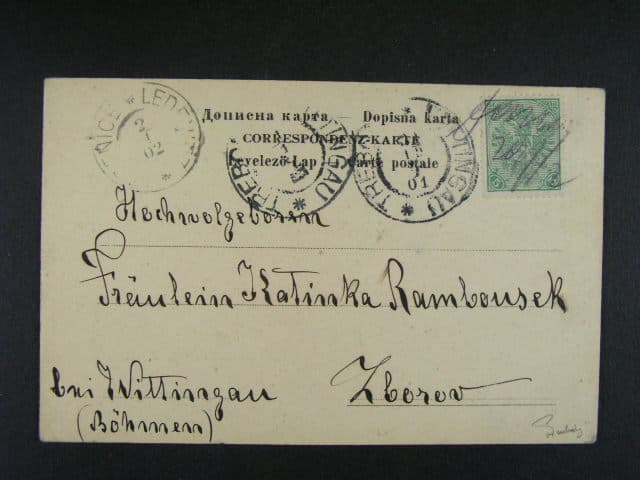 Дописна карта — Dopisna karta
CORRESPONDENZ-KARTE
Levelező-Lap — Carte postale
LEDE
NICE
TŘEBO
TINGAU
TŘEB
TTINGAU
01
5 5
Hochwolgeborn
Fräulein Katinka Rambousek
bei Wittingau Zborov
(Böhmen)